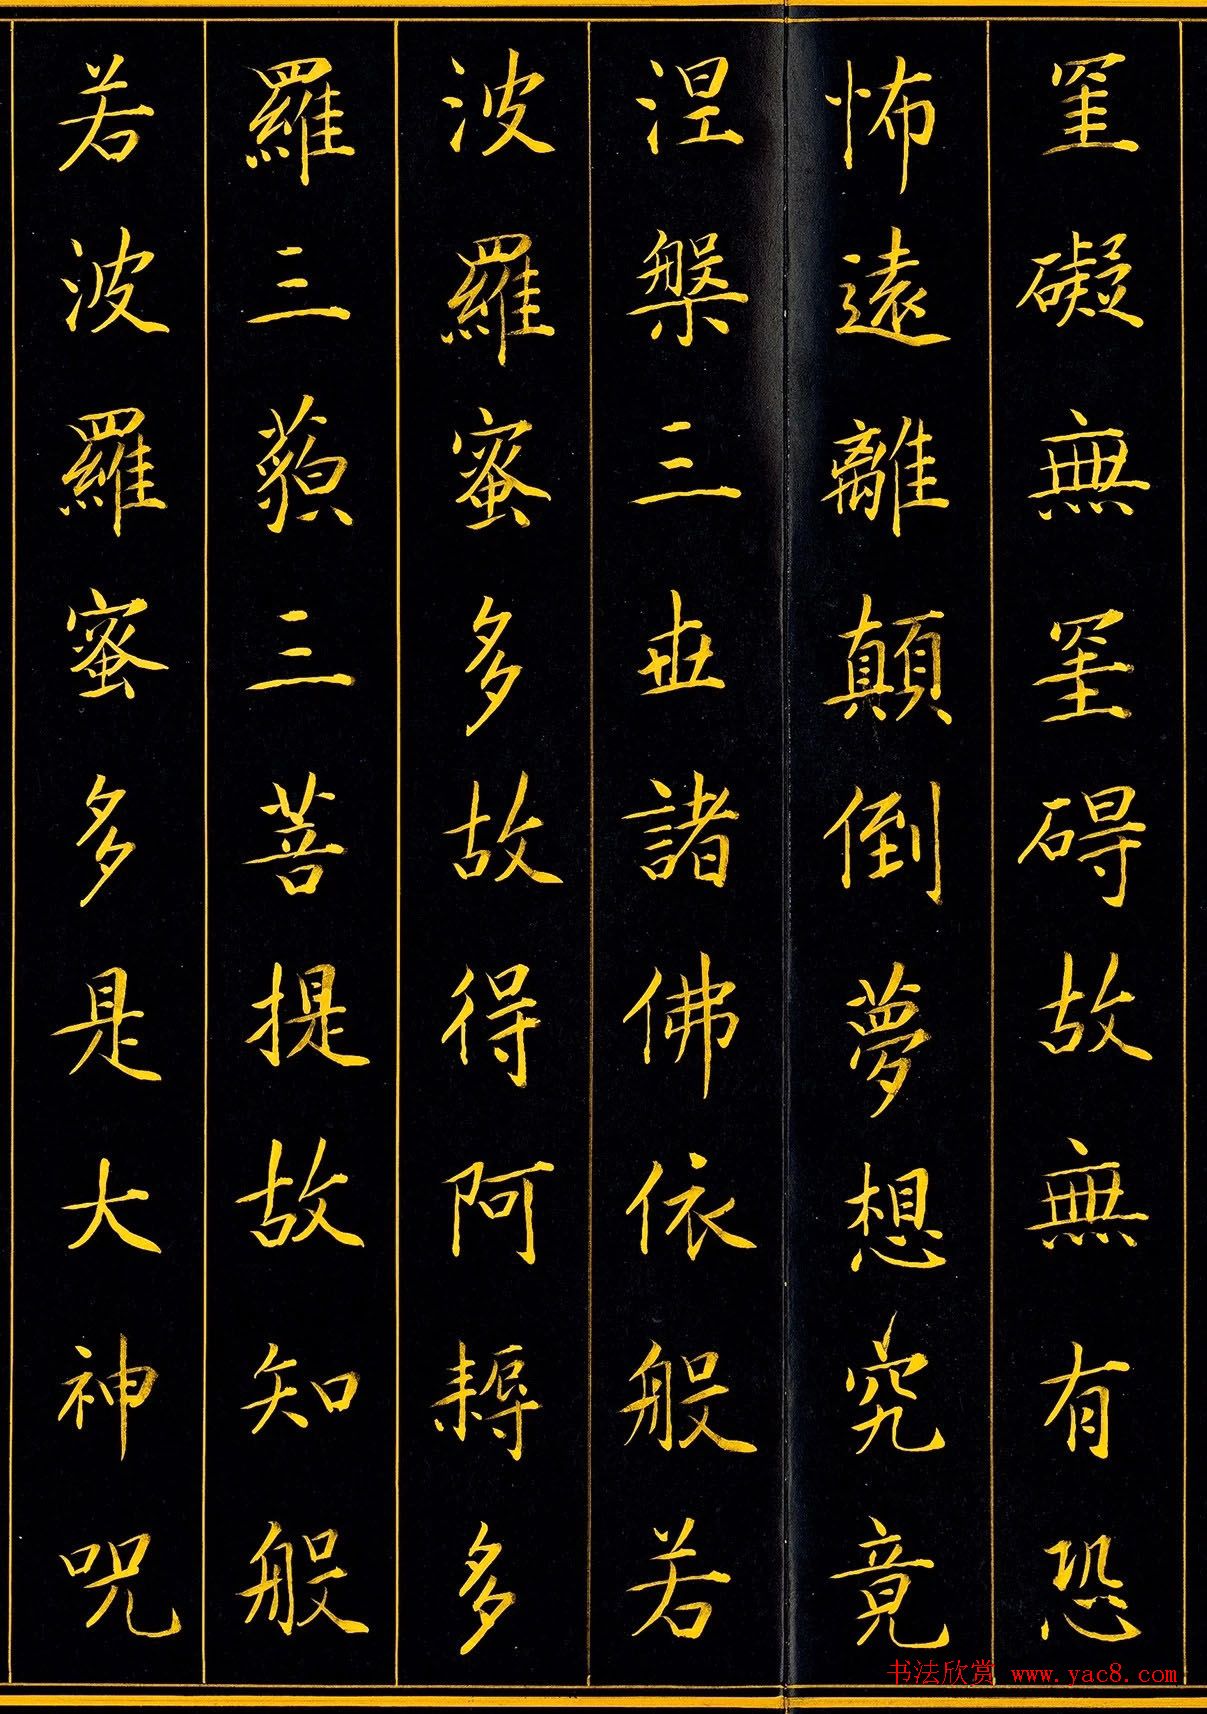 罣礙無罣碍故無有恐
怖遠離顛倒夢想究竟
涅槃三世諸佛依般若
波羅蜜多故得阿耨多
羅三藐三菩提故知般
若波羅蜜多是大神咒
书法欣赏 www.yac8.com